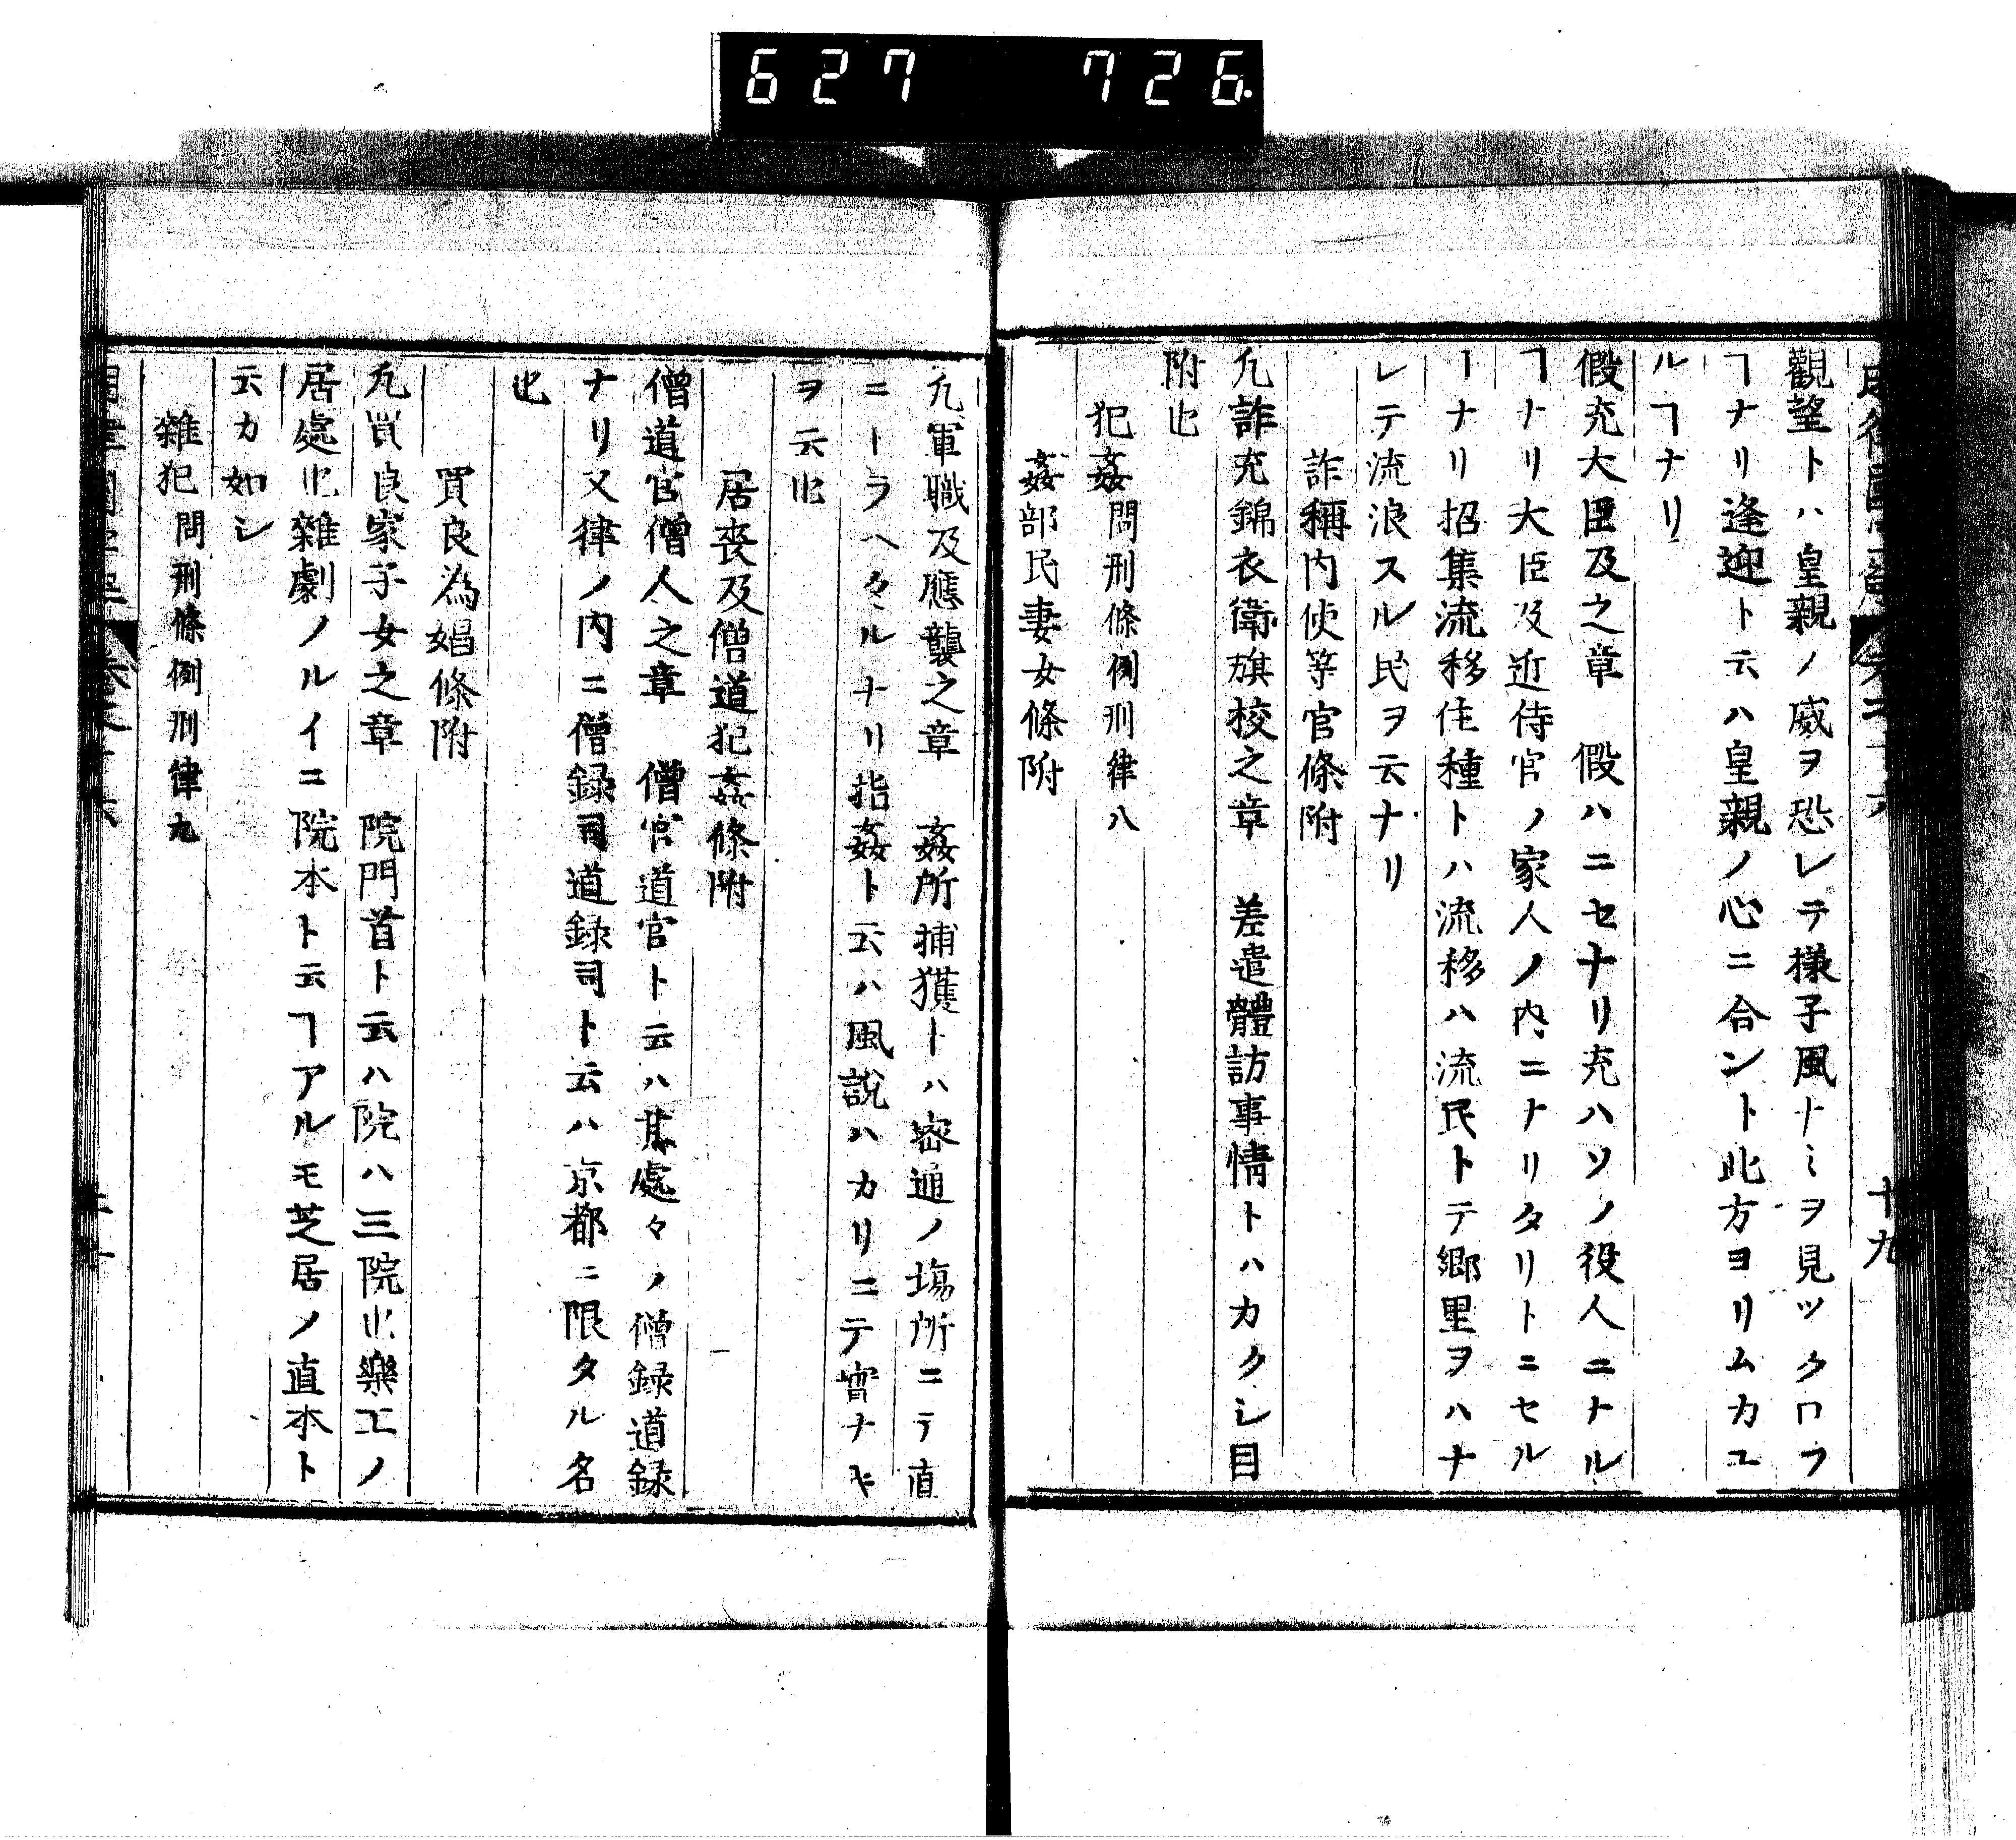 627 726.
十九
觀望トハ皇親ノ威ヲ恐レテ様子風ナミヲ見ツクロフ
ヿナリ逢迎ト云ハ皇親ノ心ニ合ント此方ヨリムカユ
ルヿナリ
假充大臣及之章 假ハニセナリ充ハソノ役人ニナル
ヿナリ大臣及近侍官ノ家人ノ内ニナリタリトニセル
ヿナリ招集流移住種トハ流移ハ流民トテ郷里ヲハナ
レテ流浪スル民ヲ云ナリ
詐稱内使等官條附
凢詐充錦衣衛旗校之章 差遣體訪事情トハカクシ目
附也
犯姦問刑條例刑律八
姦部民妻女條附
凢軍職及應襲之章 姦所捕獲トハ密通ノ塲所ニテ直
ニトラヘタルナリ指姦ト云ハ風說ハカリニテ實ナキ
ヲ云也
居喪及僧道犯姦條附
僧道官僧人之章 僧官道官ト云ハ其處々ノ僧録道録
ナリ又律ノ内ニ僧録司道録司ト云ハ京都ニ限タル名
也
買良為娼條附
凢買良家子女之章 院門首ト云ハ院ハ三院也樂工ノ
居處也雜劇ノルイニ院本ト云ヿアルモ芝居ノ直本ト
云カ如シ
雜犯問刑條例刑律九